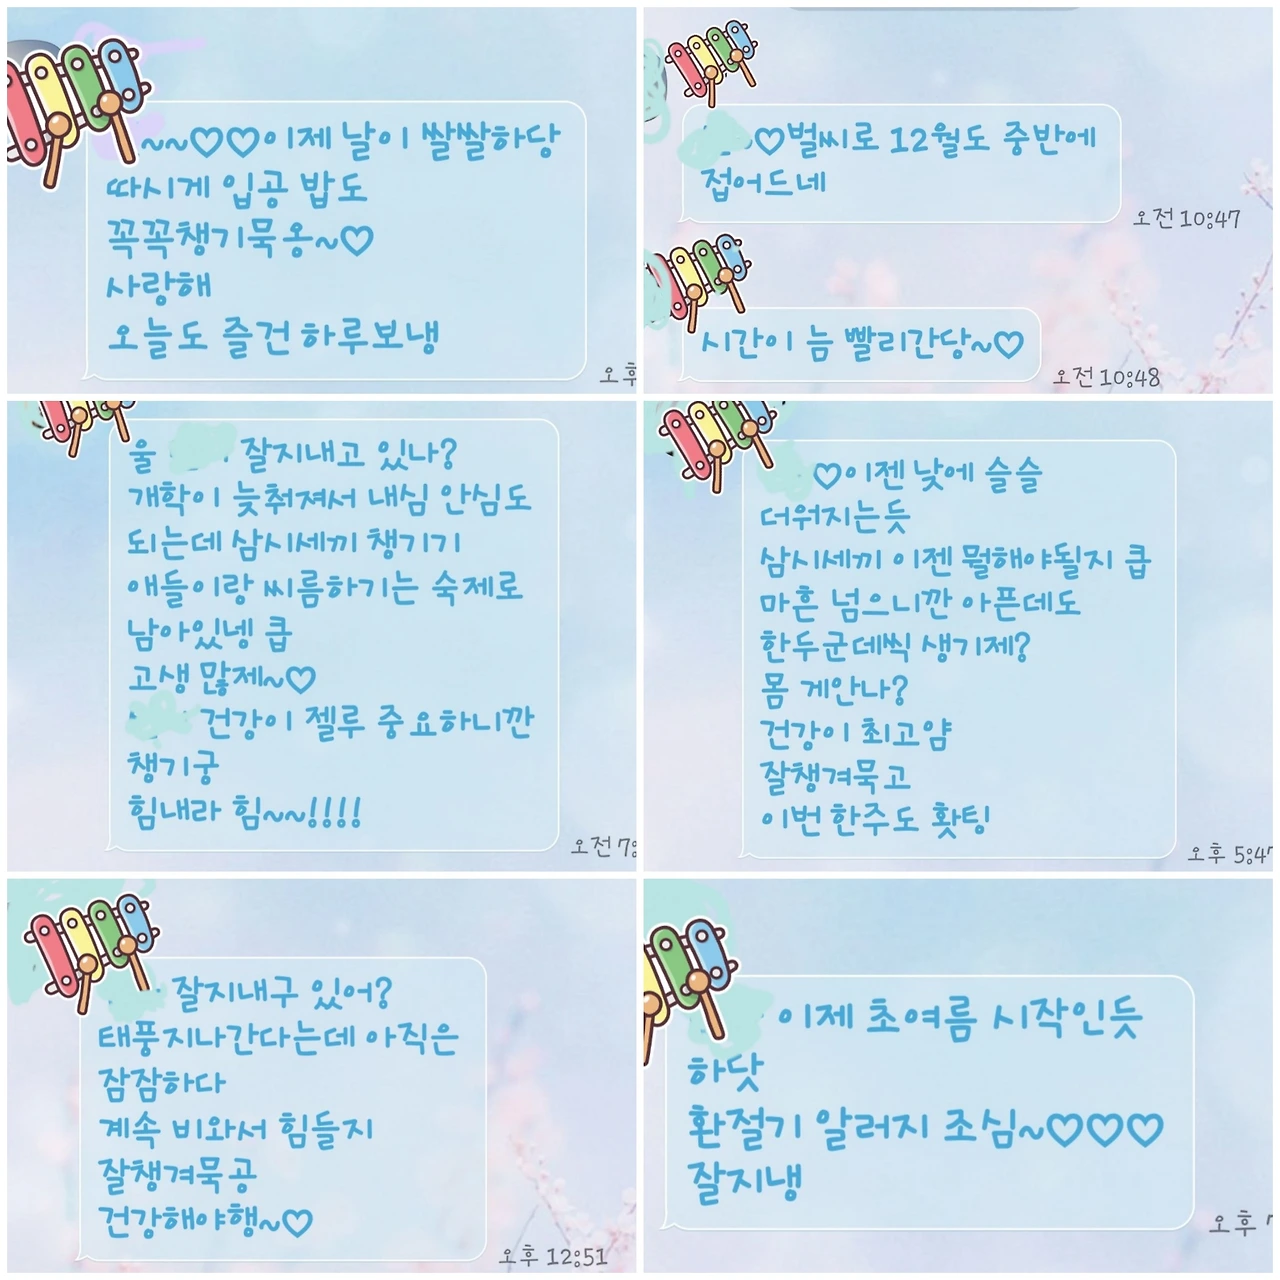 ~~♡♡이제 날이 쌀쌀하당
따시게 입공 밥도
꼭꼭챙기묵옹~♡
사랑해
오늘도 즐건 하루보냉
오후
♡벌씨로 12월도 중반에
접어드네
오전 10:47
시간이 늠 빨리간당~♡
오전 10:48
울 잘지내고 있나?
개학이 늦춰져서 내심 안심도
되는데 삼시세끼 챙기기
애들이랑 씨름하기는 숙제로
남아있넹 쿱
고생 많제~♡
건강이 젤루 중요하니깐
챙기궁
힘내라 힘~~!!!!
오전 7:
♡이젠 낮에 슬슬
더워지는듯
삼시세끼 이젠 뭘해야될지 쿱
마흔 넘으니깐 아픈데도
한두군데씩 생기제?
몸 게안나?
건강이 최고얌
잘챙겨묵고
이번 한주도 홧팅
오후 5:47
잘지내구 있어?
태풍지나간다는데 아직은
잠잠하다
계속 비와서 힘들지
잘챙겨묵공
건강해야행~♡
오후 12:51
이제 초여름 시작인듯
하닷
환절기 알러지 조심~♡♡♡
잘지냉
오후 7